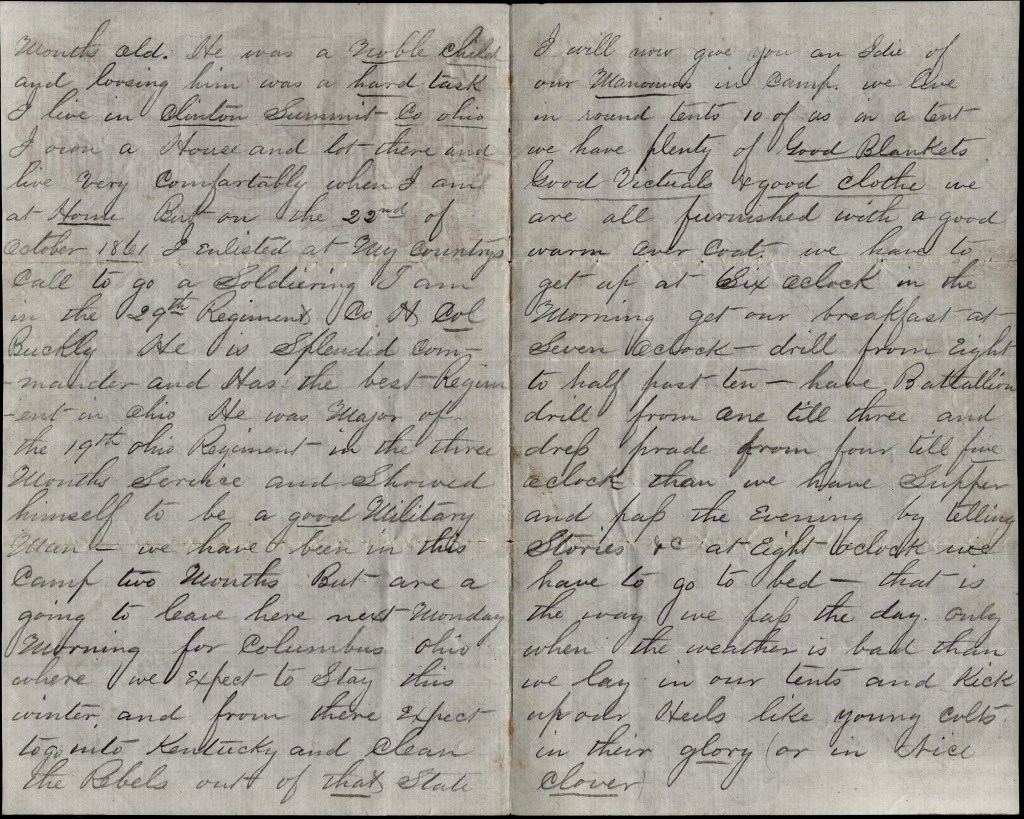 Months old. He was a Noble child
and loosing him was a hard task
I live in Clinton Summit Co ohio
I own a House and lot there and
live very Comfortably when I am
at Home But on the 22nd of
October 1861 I Enlisted at My Countrys
Call to go a Soldiering I am
in the 29th Regiment Co H Col
Buckly He is Splendid Com-
-mander and Has the best Regim
-ent in ohio He was Major of
the 19th ohio Regiment in the three
Months Service and Showed
himself to be a good Military
Man - we have been in this
Camp two Months But are a
going to leave here next Monday
Morning for Columbus ohio
where we Expect to Stay this
winter and from there Expect
to go into Kentucky and Clean
the Rebels out of that State
I will now give you an Idie of
our Manouvers in Camp. we live
in round tents 10 of us in a tent
we have plenty of Good Blankets
Good Victuals & good clothe we
are all furnished with a good
warm over Coat. we have to
get up at Six oclock in the
Morning get our breakfast at
Seven oclock - drill from Eight
to half past ten - have Battallion
drill from one till three and
dress prade from four till five
oclock than we have Supper
and pass the Evening by telling
Stories &c at Eight oclock we
have to go to bed - that is
the way we pass the day. only
when the weather is bad than
we lay in our tents and Kick
up our Heels like young Colts
in their glory (or in Nice
Clover)